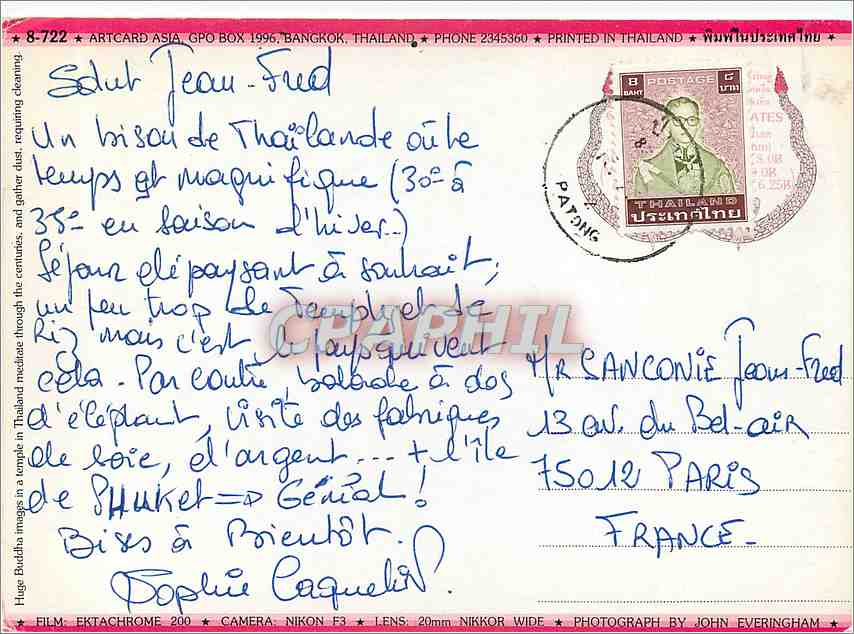 ★ 8-722 ★ ARTCARD ASIA, GPO BOX 1996, BANGKOK, THAILAND. ★ PHONE 2345360 ★ PRINTED IN THAILAND ★ พิมพ์ในประเทศไทย ★
Huge Buddha images in a temple in Thailand meditate through the centuries, and gather dust, requiring cleaning.
Salut Jean-Fred
Un bisou de Thaïlande où le
temps est magnifique (30° à
35° en saison d'hiver..)
Séjour dépaysant à souhait,
un peu trop de Temples et de
Riz mais c'est le pays qui veut
cela. Par contre, balade à dos
d'éléphant, visite des fabriques
de soie, d'argent... + l'île
de PHUKET => Génial !
Bises à Bientôt.
Sophie Caquelin
8 POSTAGE ๘
BAHT บาท
THAILAND
ประเทศไทย
PATONG
ATES
6.25B
CPAPHIL
Mr SANCONIE Jean-Fred
13 av. du Bel-air
75012 PARIS
FRANCE-
★ FILM: EKTACHROME 200 ★ CAMERA: NIKON F3 ★ LENS: 20mm NIKKOR WIDE ★ PHOTOGRAPH BY JOHN EVERINGHAM ★